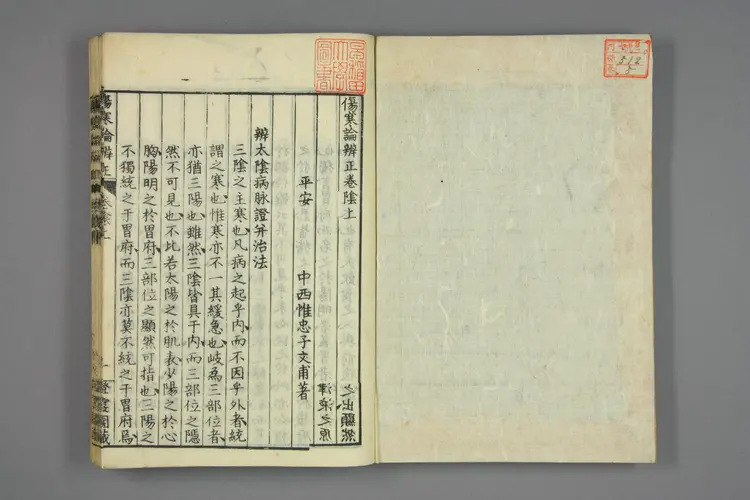 傷寒論辨正卷陰上
平安　中西惟忠子文甫著
辨太陰病脉證并治法
三陰之主寒也凡病之起乎内而不因乎外者統
謂之寒也惟寒亦不一其緩急也岐爲三部位者
亦猶三陽也雖然三陰皆具于内而三部位之隱
然不可見也不比若太陽之於肌表少陽之於心
胸陽明之於胃府三部位之顯然可指也三陽之
不獨統之于胃府而三陰亦莫不統之于胃府焉
傷寒論辨正